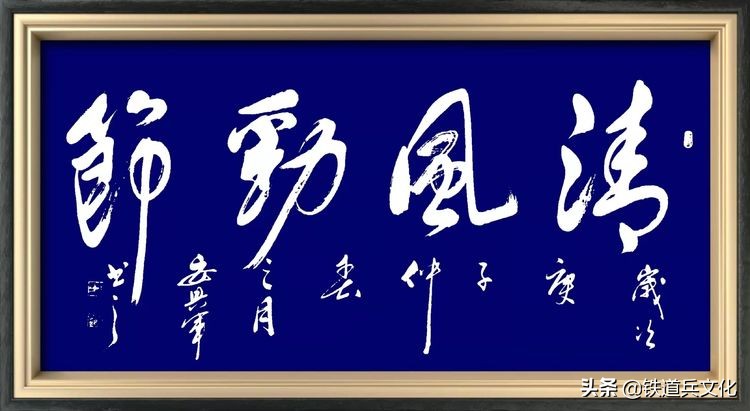 清風勁節
歲次庚子仲春之月安興軍書之
头条 @铁道兵文化